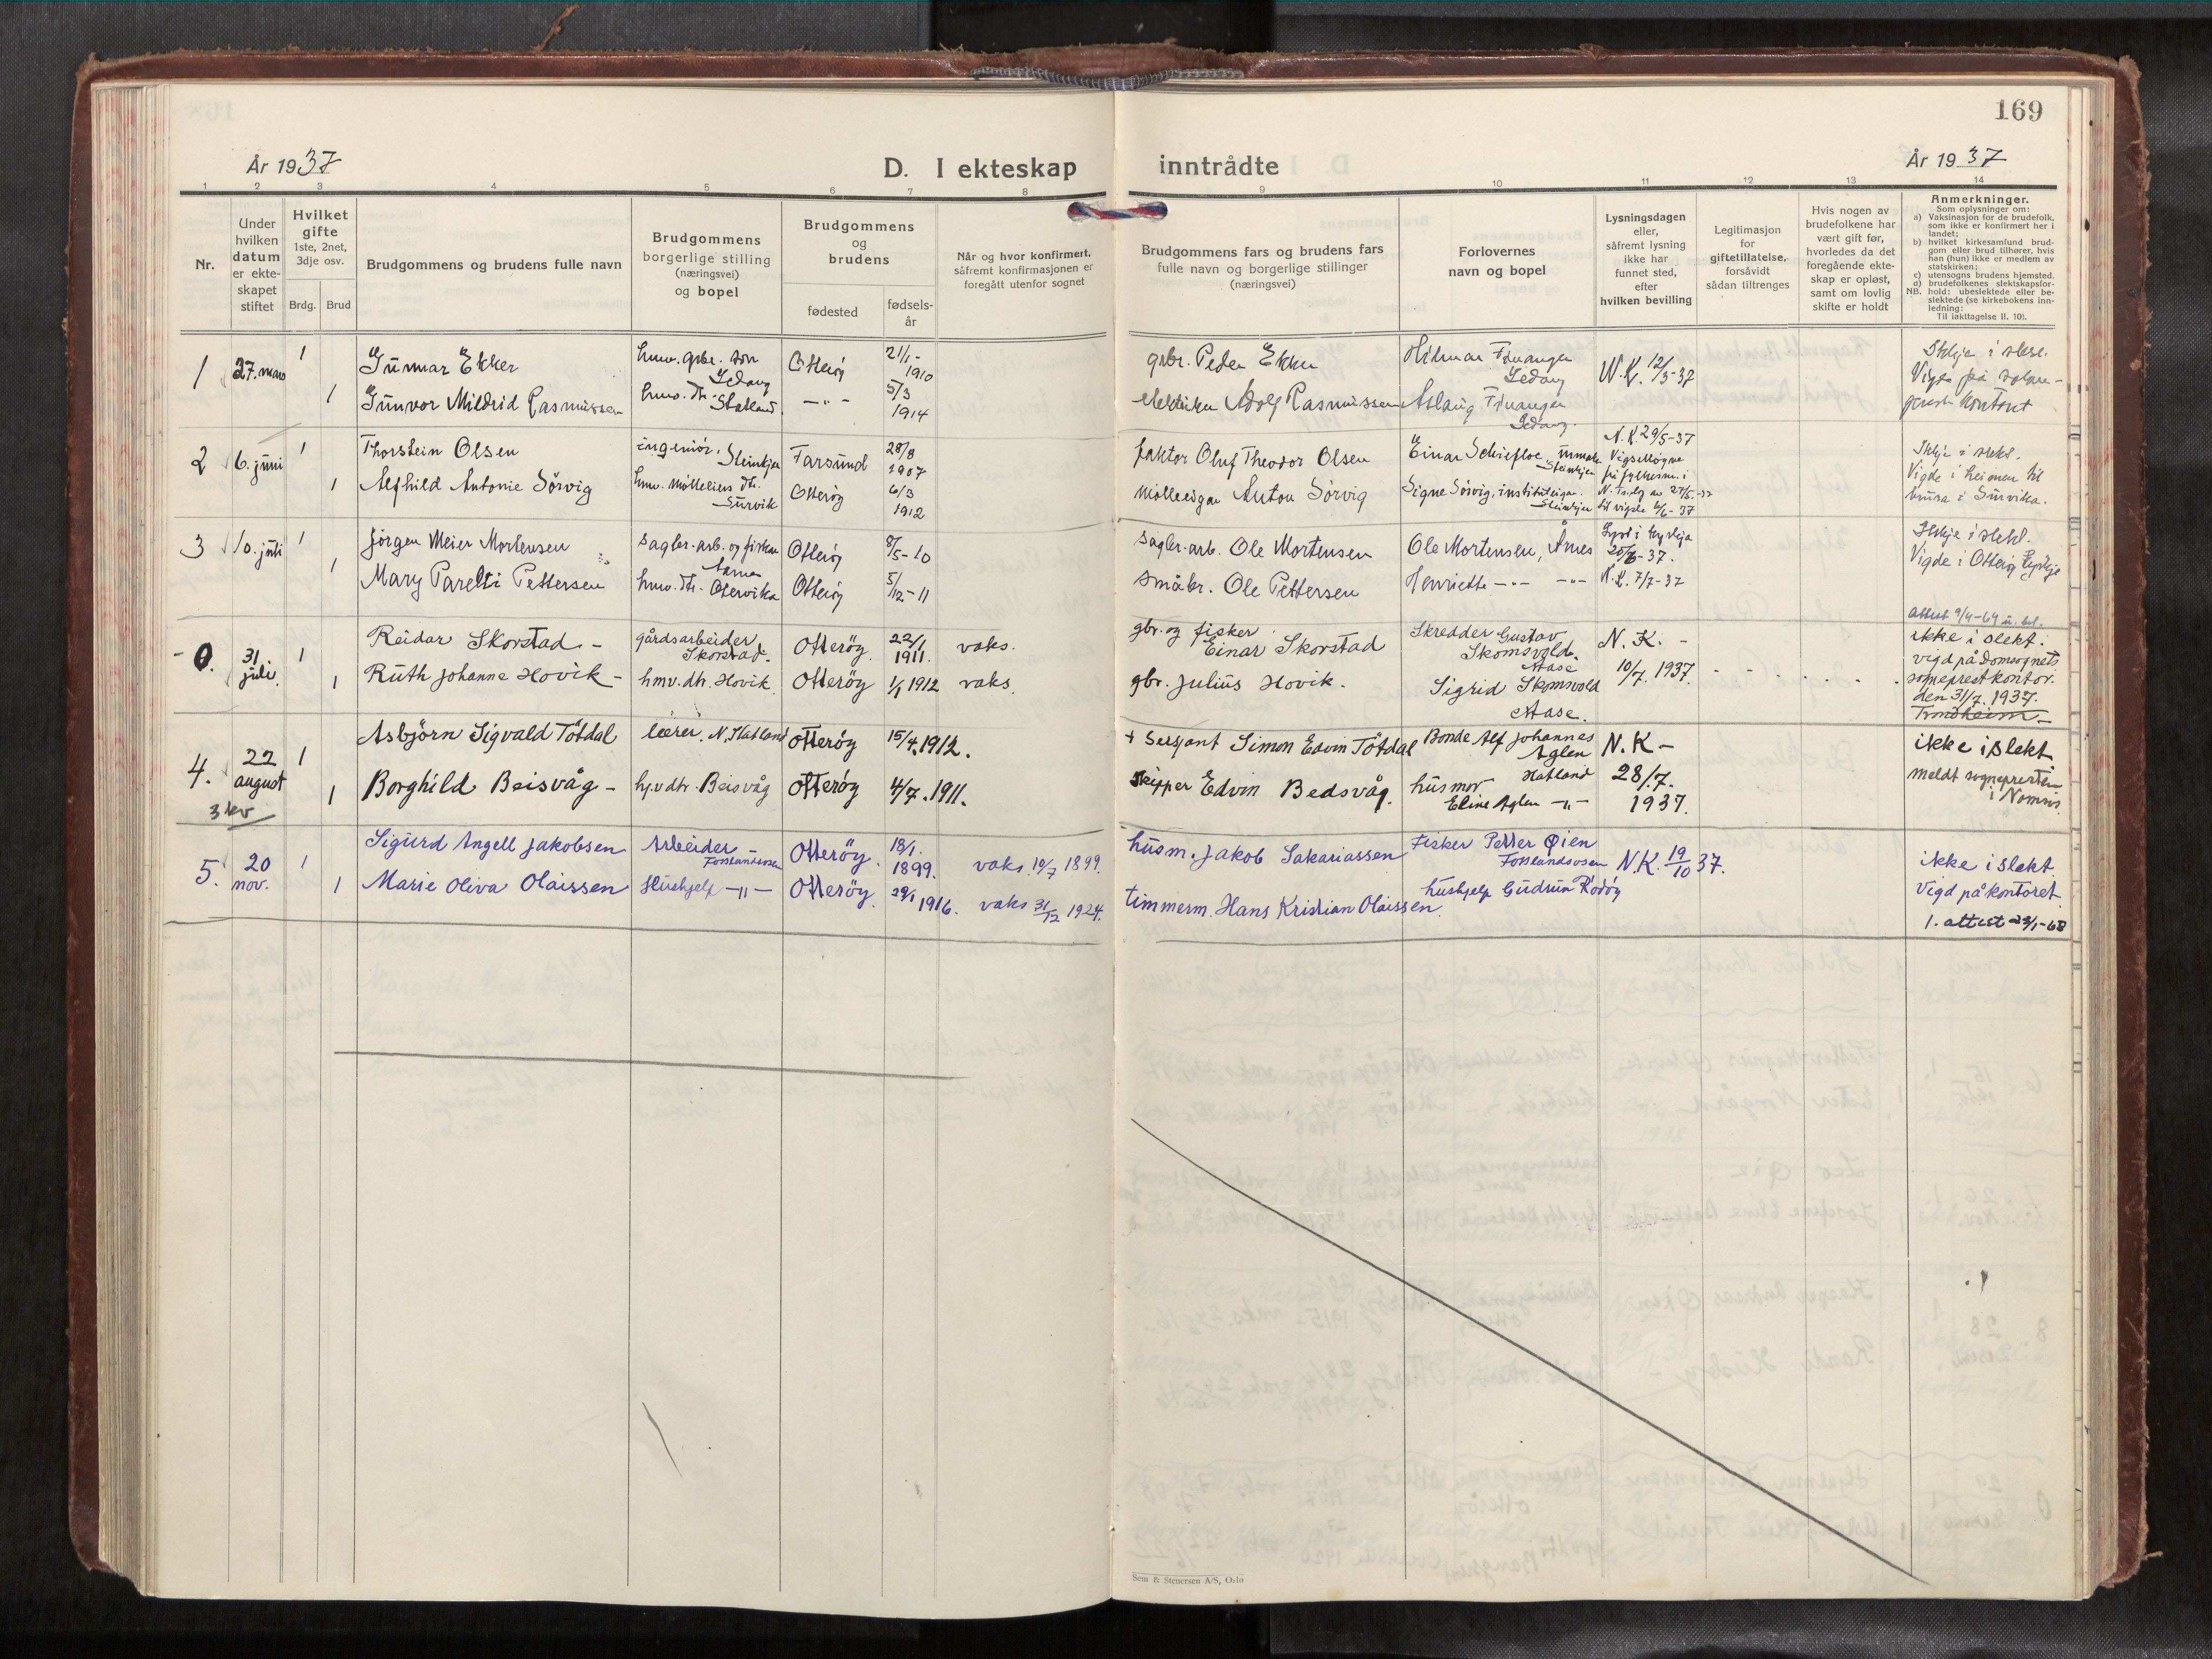 169
År 1937
D. I ekteskap
inntrådte
År 1937
1 2 3 4 5 6 7 8
9 10 11 12 13 14
Nr.
Under
hvilken
datum
er ekte-
skapet
stiftet
Hvilket
gifte
1ste, 2net,
3dje osv.
Brdg. Brud
Brudgommens og brudens fulle navn
Brudgommens
borgerlige stilling
(næringsvei)
og bopel
Brudgommens
og
brudens
fødested
fødsels-
år
Når og hvor konfirmert,
såfremt konfirmasjonen er
foregått utenfor sognet
Brudgommens fars og brudens fars
fulle navn og borgerlige stillinger
(næringsvei)
Forlovernes
navn og bopel
Lysningsdagen
eller,
såfremt lysning
ikke har
funnet sted,
efter
hvilken bevilling
Legitimasjon
for
giftetillatelse,
forsåvidt
sådan tiltrenges
Hvis nogen av
brudefolkene har
vært gift før,
hvorledes da det
foregående ekte-
skap er opløst,
samt om lovlig
skifte er holdt
Anmerkninger.
Som oplysninger om:
a) Vaksinasjon for de brudefolk,
som ikke er konfirmert her i
landet;
b) hvilket kirkesamfund brud-
gom eller brud tilhører, hvis
han (hun) ikke er medlem av
statskirken;
c) utensogns brudens hjemsted.
d) brudefolkenes slektskapsfor-
NB. hold: ubeslektede eller be-
slektede (se kirkebokens inn-
ledning:
Til iakttagelse II. 10).
1 27. mars 1
Gunnar Ekker
hmv. gbr. søn
Otterøy
21/1-
1910
gbr. Peder Ekker
N.K. 12/3-37
Ikkje i slekt.
Vigde på sokne-
prest kontoret
1
Gunvor Mildrid Rasmussen
hmv. dtr. Statland
-"-
5/3
1914
elektriker Adolf Rasmussen
Aslaug
2 6. juni 1
Thorstein Olsen
ingeniør, Steinkjer
Farsund
28/8
1907
faktor Oluf Theodor Olsen
Einar Schiefloe,
Steinkjer
N.K. 29/5-37
Vigselløgne
Ikkje i slekt.
Vigde i heimen til
brura i Survika.
1
Alfhild Antonie Sørvig
hmv. dtr.
Survik
Otterøy
6/3
1912
mølleeigar Anton Sørvig
Signe Sørvig,
Steinkjer
til vigsle 6/6-37
3 10. juli 1
Jørgen Meier Mortensen
sagbr.-arb. og fisker
Otterøy
8/5-10
sagbr.-arb. Ole Mortensen
Ole Mortensen, Årnes
20/6-37.
Ikkje i slekt.
Vigde i Otterøy kyrkje
1
Mary Parelti Pettersen
hmv. dtr. Otervika
Otterøy
5/12-11
småbr. Ole Pettersen
Henriette -"- -"-
N.K. 7/7-37
attest 9/4-64
- 0. 31 juli. 1
Reidar Skorstad -
gårdsarbeider
Skorstad.
Otterøy.
22/1
1911.
vaks.
gbr. og fisker
Einar Skorstad
Skredder Gustav
Skomsvold.
Aase
N. K. -
10/7. 1937.
ikke i slekt.
vigd på Domsognets
sogneprestkontor.
den 31/7. 1937.
Trondheim -
1
Ruth Johanne Hovik -
hmv. dtr. Hovik.
Otterøy
1/1 1912
vaks.
gbr. Julius Hovik.
Sigrid Skomsvold
Aase.
4. 22 august 1
Asbjørn Sigvald Tøtdal
lærer. N. Statland
Otterøy
15/4. 1912.
+ Sersjant Simon Edvin Tøtdal
Bonde Alf Johannes
Aglen
Hatland
N.K -
28/7.
1937.
ikke i slekt
meldt sognepresten
i Namsos
3 kv
1
Borghild Beisvåg -
hjv dtr. Beisvåg
Otterøy
4/7. 1911.
Skipper Edvin Bedsvåg.
husmor
Eline Aglen -"-
5. 20 nov. 1
Sigurd Angell Jakobsen
Arbeider -
Fosslandsosen
Otterøy.
18/1.
1899.
vaks. 10/7 1899.
husm. Jakob Sakariassen
Fisker Petter Øien
Fosslandsosen
N.K. 19/10 37.
ikke i slekt.
Vigd på kontoret
1
Marie Oliva Olaissen
Hushjelp -"-
Otterøy.
29/1 1916.
vaks 31/12 1924.
timmerm. Hans Kristian Olaissen.
hushjelp Gudrun Rødøy
1. attest 23/1-68
Sem & Stenersen A/S, Oslo